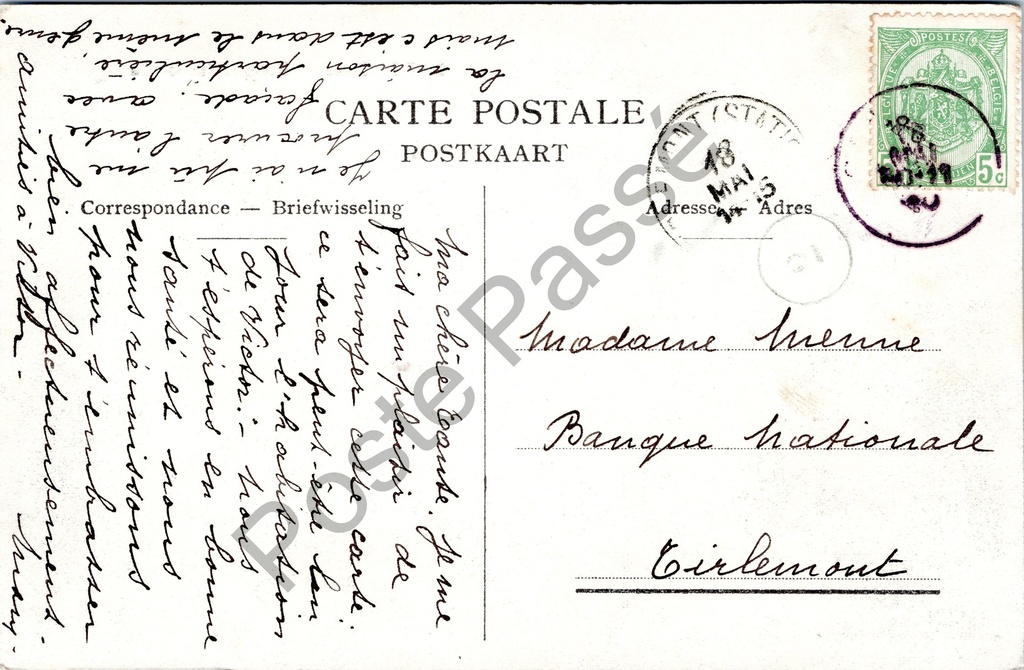 CARTE POSTALE
POSTKAART
Correspondance — Briefwisseling
Adresse — Adres
POSTES
5 5c
(STATI
18
MAI
Ma chère Tante. Je me
fais un plaisir de
t'envoyer cette carte.
ce sera peut-être
jour l'habitation
de Victor. – Nous
t'espérons en bonne
santé et nous
nous réunissons
pour t'embrasser
bien affectueusement. –
amitiés à Victor –
Je n'ai pu me
procurer l'autre
façade, avec
la maison particulière,
mais c'est dans le même genre.
Madame Menne
Banque Nationale
Tirlemont
Poste Passé